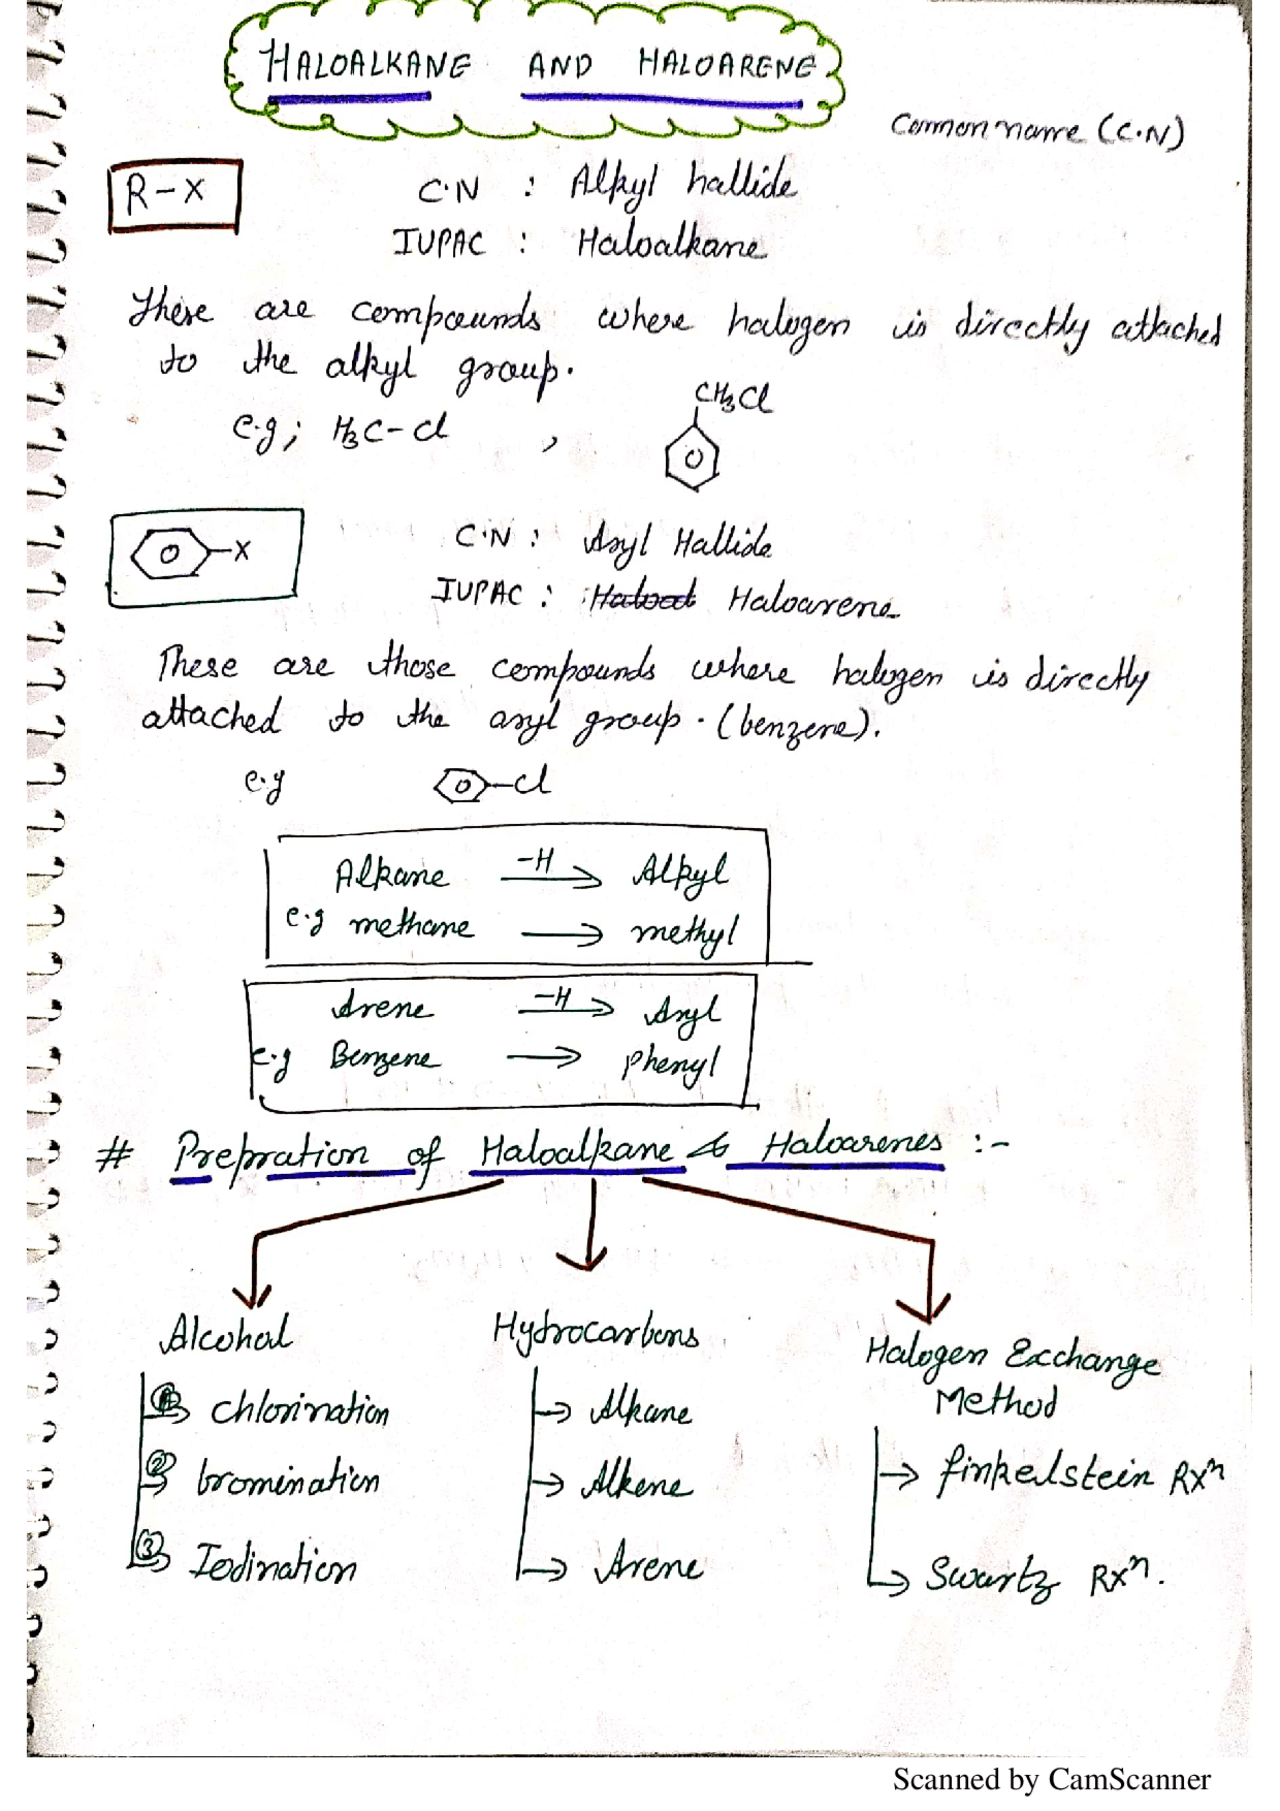 HALOALKANE AND HALOARENE
Common name (C.N)
R-X
C.N : Alkyl hallide
IUPAC : Haloalkane
These are compounds where halogen is directly attached
to the alkyl group.
e.g; H3C-Cl , CH3Cl
X
C.N : Aryl Hallide
IUPAC : Haloarene
These are those compounds where halogen is directly
attached to the aryl group. (benzene).
e.g Cl
Alkane -H→ Alkyl
e.g methane → methyl
Arene -H→ Aryl
e.g Benzene → phenyl
# Prepration of Haloalkane & Haloarenes :-
Alcohal
① chlorination
② bromination
③ Iodination
Hydrocarbons
→ Alkane
→ Alkene
→ Arene
Halogen Exchange
Method
→ finkelstein Rxn
→ Swartz Rxn.
Scanned by CamScanner